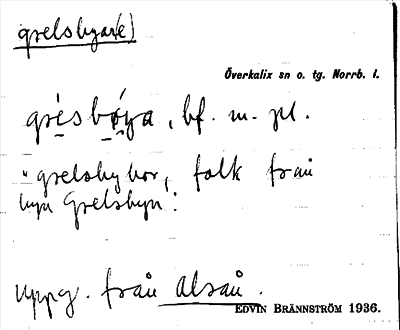 grelsbyar(e)
Överkalix sn o. tg. Norrb. l.
grèsbóya, bf. m. pl.
"grelsbybor, folk från
byn Grelsbyn".
uppg. från Alsån.
EDVIN BRÄNNSTRÖM 1936.